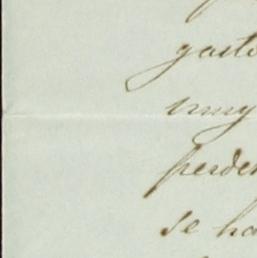 gasto
muy
perder
se ha